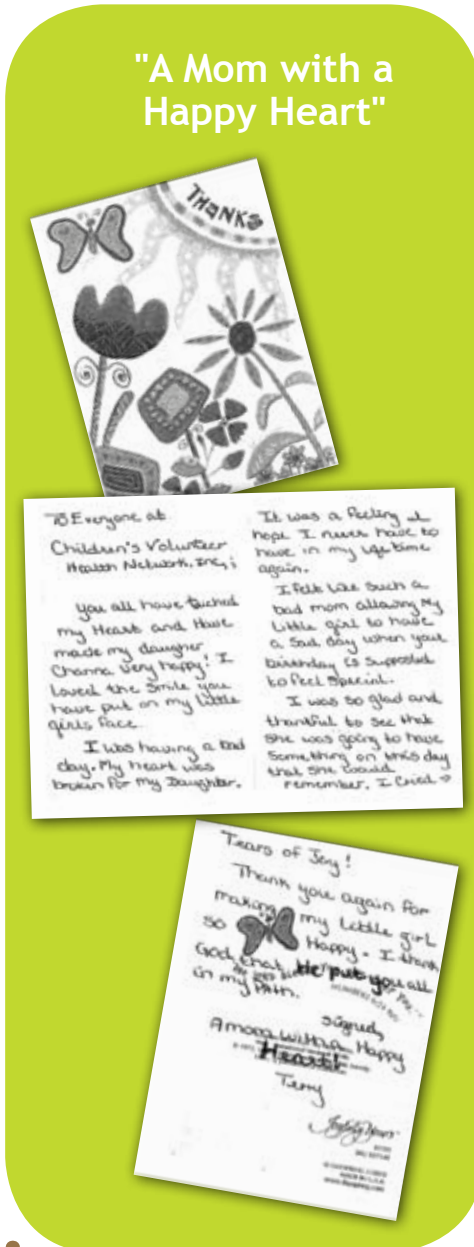 "A Mom with a
Happy Heart"
THANKS
To Everyone at
Children's Volunteer
Health Network, Inc,;
You all have tuched
my Heart and Have
made my daugher
Channa very happy! I
Loved the Smile you
have put on my little
girls face
I was having a bad
day. My heart was
broken for my Daughter.
It was a feeling I
hope I never have to
have in my life time
again.
I felt like such a
bad mom allowing My
little girl to have
a Sad day when your
birthday is supposted
to feel special.
I was so glad and
thankful to see that
she was going to have
Something on this day
that she would
remember. I Cried
Tears of Joy!
Thank you again for
making my little girl
so Happy. I thank
God that He put you all
in my Path.
Signed,
A mom with a Happy
Heart!
Terry